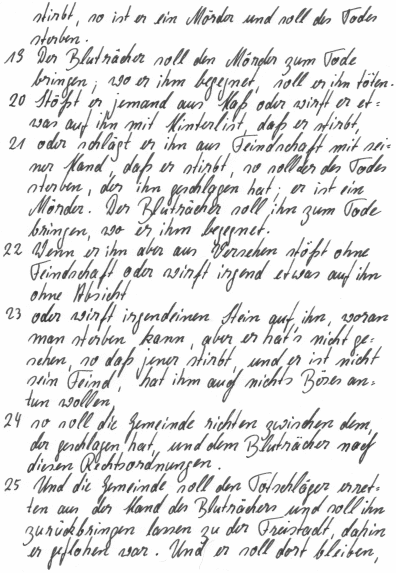 stirbt, so ist er ein Mörder und soll des Todes
sterben.
19 Der Bluträcher soll den Mörder zum Tode
bringen; wo er ihm begegnet, soll er ihn töten.
20 Stößt er jemand aus Haß oder wirft er et=
was auf ihn mit Hinterlist, daß er stirbt,
21 oder schlägt er ihn aus Feindschaft mit sei=
ner Hand, daß er stirbt, so soll der des Todes
sterben, der ihn geschlagen hat; er ist ein
Mörder. Der Bluträcher soll ihn zum Tode
bringen, wo er ihm begegnet.
22 Wenn er ihn aber aus Versehen stößt ohne
Feindschaft oder wirft irgend etwas auf ihn
ohne Absicht
23 oder wirft irgendeinen Stein auf ihn, woran
man sterben kann, aber er hat's nicht ge=
sehen, so daß jener stirbt, und er ist nicht
sein Feind, hat ihm auch nichts Böses an=
tun wollen,
24 so soll die Gemeinde richten zwischen dem,
der geschlagen hat, und dem Bluträcher nach
diesen Rechtsordnungen.
25 Und die Gemeinde soll den Totschläger erret=
ten aus der Hand des Bluträchers und soll ihn
zurückbringen lassen zu der Freistadt, dahin
er geflohen war. Und er soll dort bleiben,